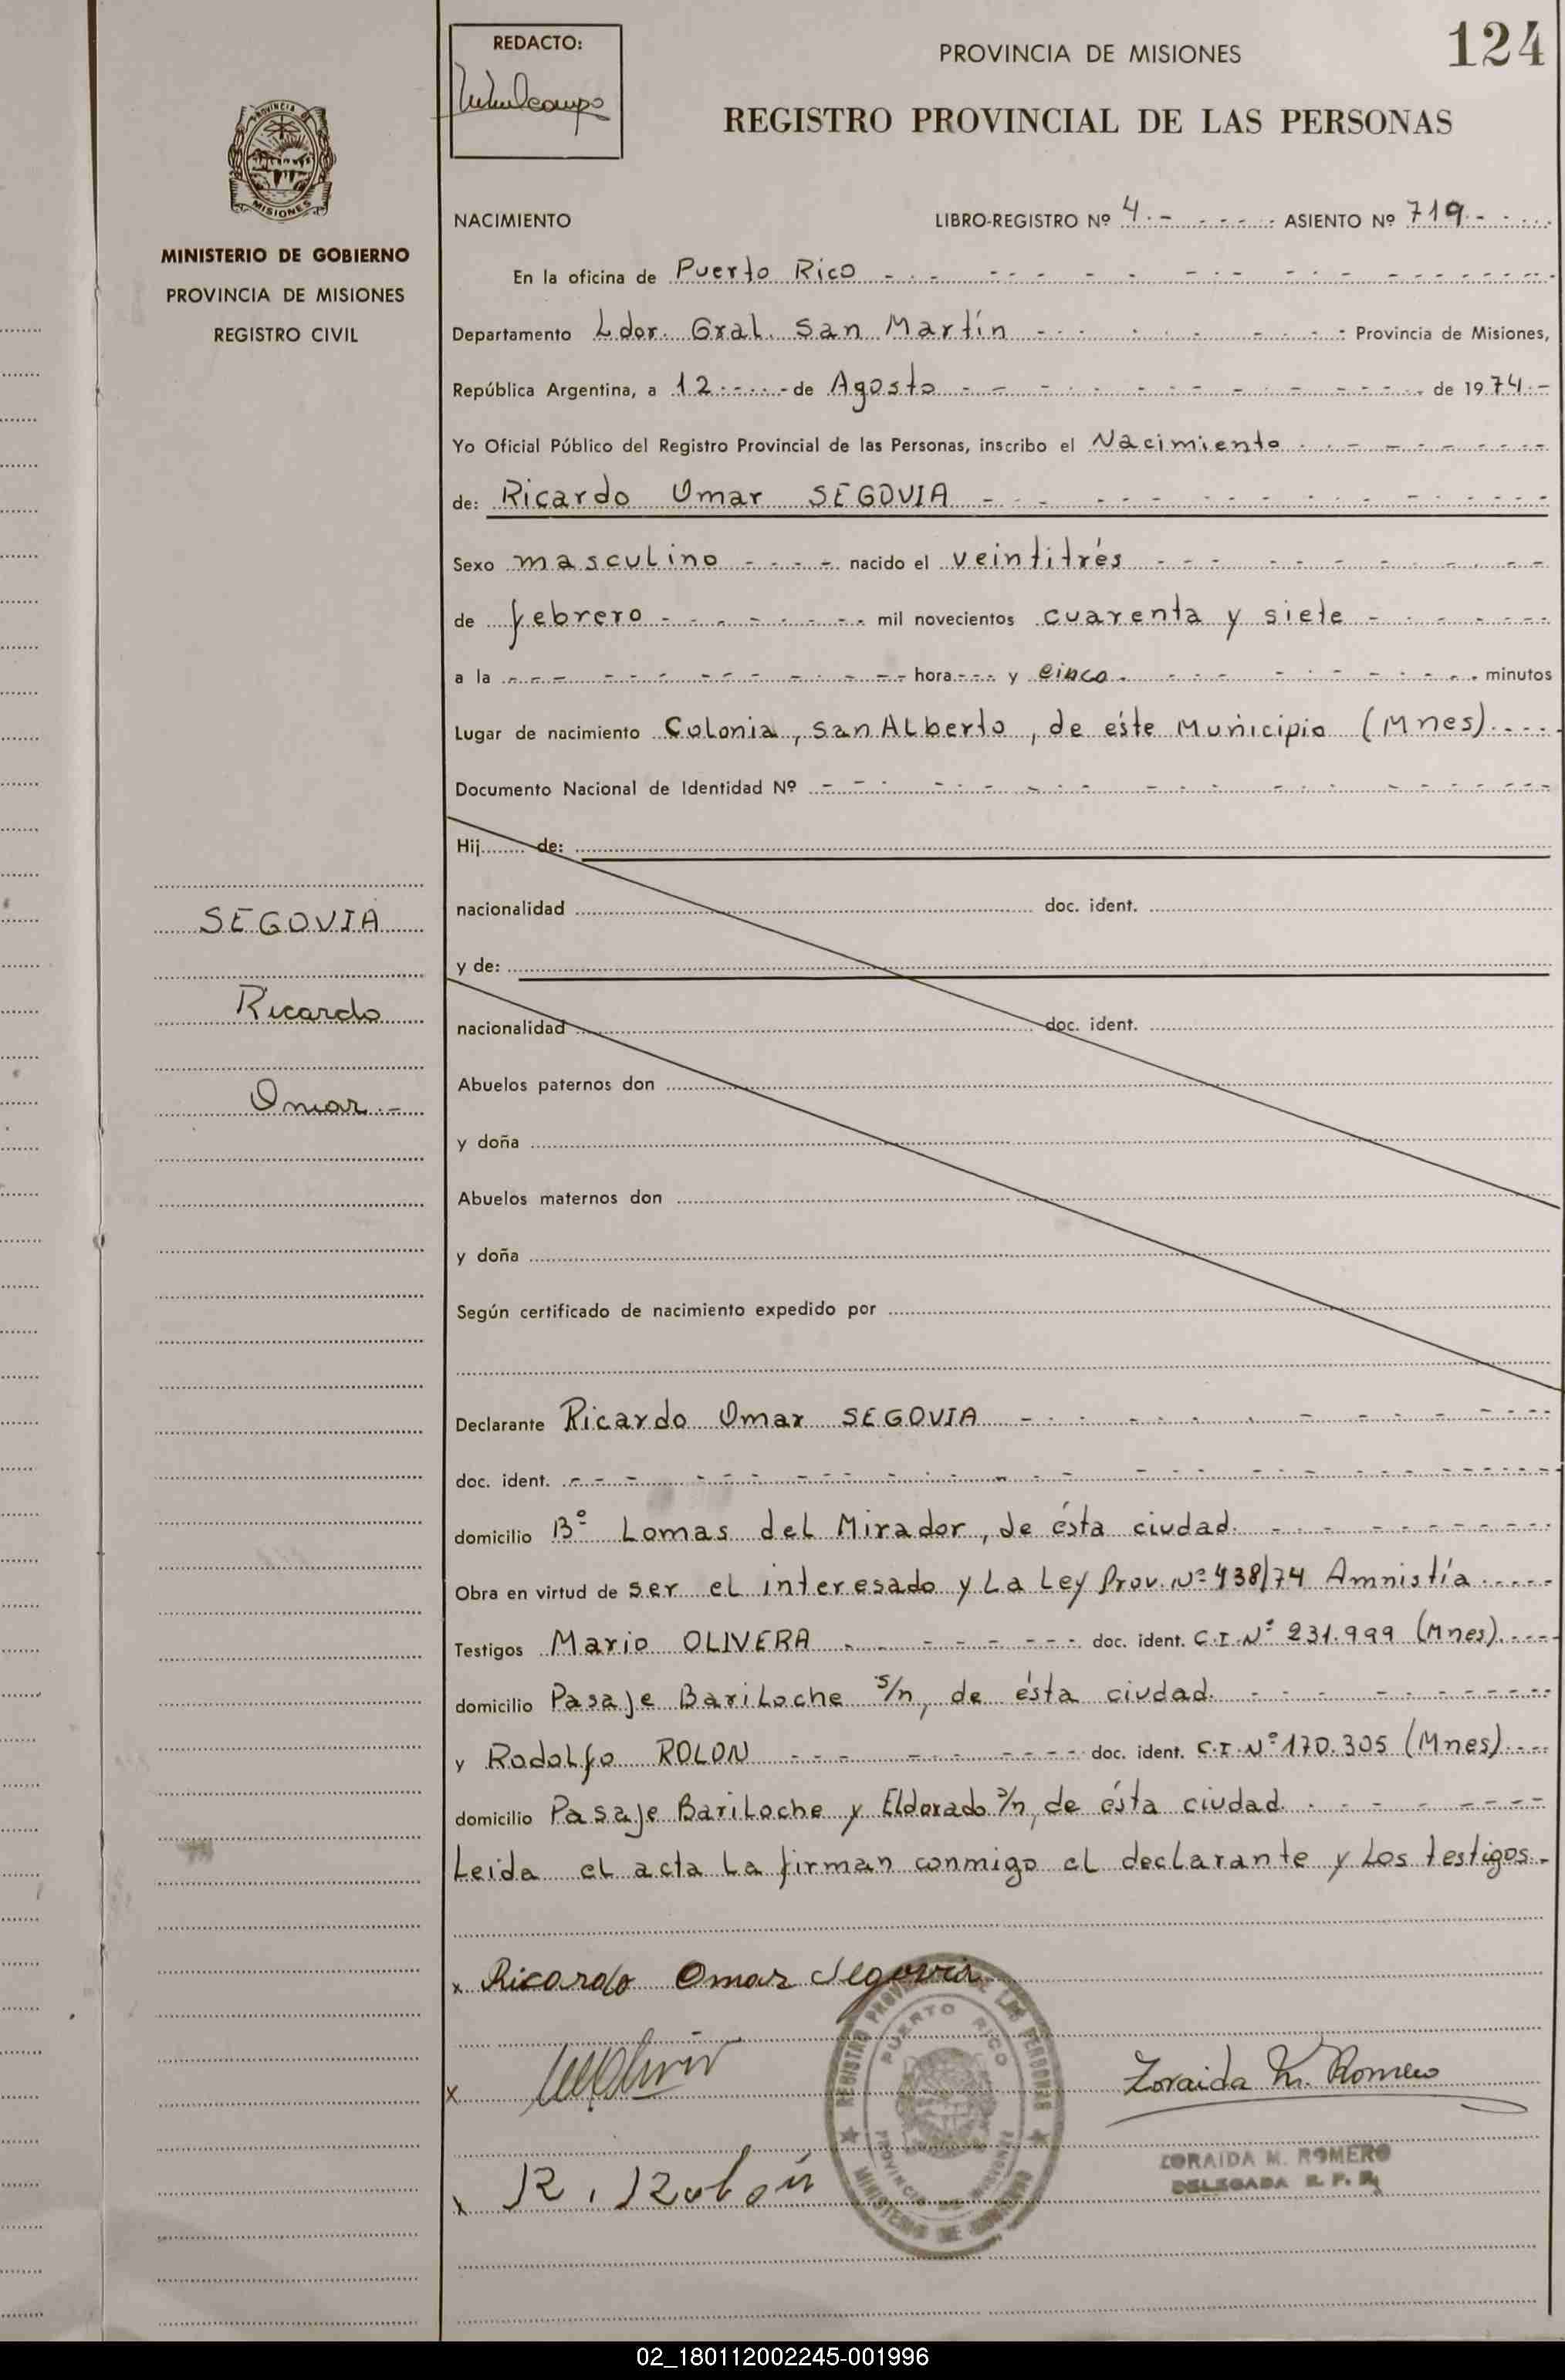 REDACTO:
PROVINCIA DE MISIONES
124
REGISTRO PROVINCIAL DE LAS PERSONAS
PROVINCIA
MISIONES
MINISTERIO DE GOBIERNO
PROVINCIA DE MISIONES
REGISTRO CIVIL
SEGOVIA
Ricardo
Omar.-
NACIMIENTO LIBRO-REGISTRO Nº 4.- ASIENTO Nº 719.-
En la oficina de Puerto Rico
Departamento Ldor. Gral. San Martín Provincia de Misiones,
República Argentina, a 12 de Agosto de 1974.-
Yo Oficial Público del Registro Provincial de las Personas, inscribo el Nacimiento
de: Ricardo Omar SEGOVIA
Sexo masculino nacido el veintitrés
de febrero mil novecientos cuarenta y siete
a la hora y cinco minutos
Lugar de nacimiento Colonia, san ALberto, de éste Municipio (Mnes)
Documento Nacional de Identidad Nº
Hij de:
nacionalidad doc. ident.
y de:
nacionalidad doc. ident.
Abuelos paternos don
y doña
Abuelos maternos don
y doña
Según certificado de nacimiento expedido por
Declarante Ricardo Omar SEGOVIA
doc. ident.
domicilio Bº Lomas del Mirador, de ésta ciudad.
Obra en virtud de ser el interesado y La Ley Prov. Nº 438/74 Amnistía
Testigos Mario OLIVERA doc. ident. C.I. Nº 231.999 (Mnes)
domicilio Pasaje BariLoche s/n, de ésta ciudad.
y RodoLfo ROLON doc. ident. C.I. Nº 170.305 (Mnes)
domicilio Pasaje BariLoche y Eldorado s/n, de ésta ciudad.
Leida el acta La firman conmigo el declarante y Los testigos.-
x Ricardo Omar Segovia
x
x R. Rolón
Zoraida M. Romero
ZORAIDA M. ROMERO
DELEGADA R. P. P.
REGISTRO PROVINCIAL DE LAS PERSONAS
PUERTO RICO
PROVINCIA DE MISIONES
MINISTERIO DE GOBIERNO
02_180112002245-001996